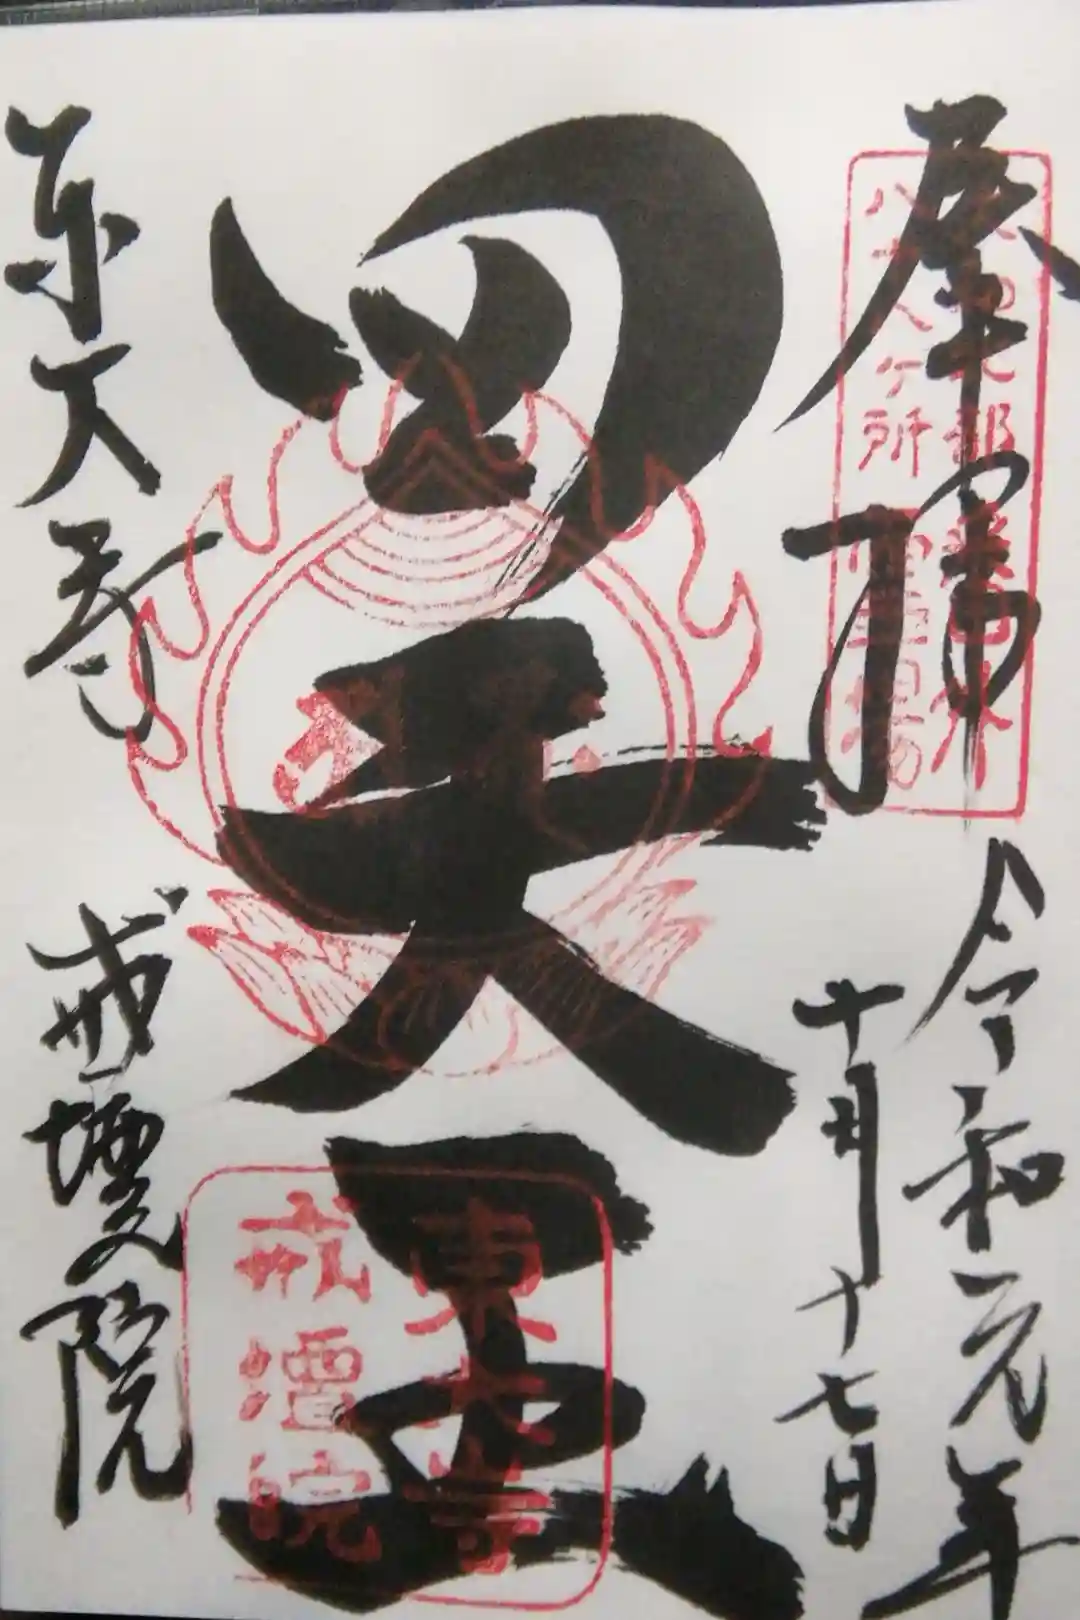 奉拝
令和元年
十月十七日
四天王
東大寺
戒壇院
八十八ケ所
霊場
東大寺
戒壇院